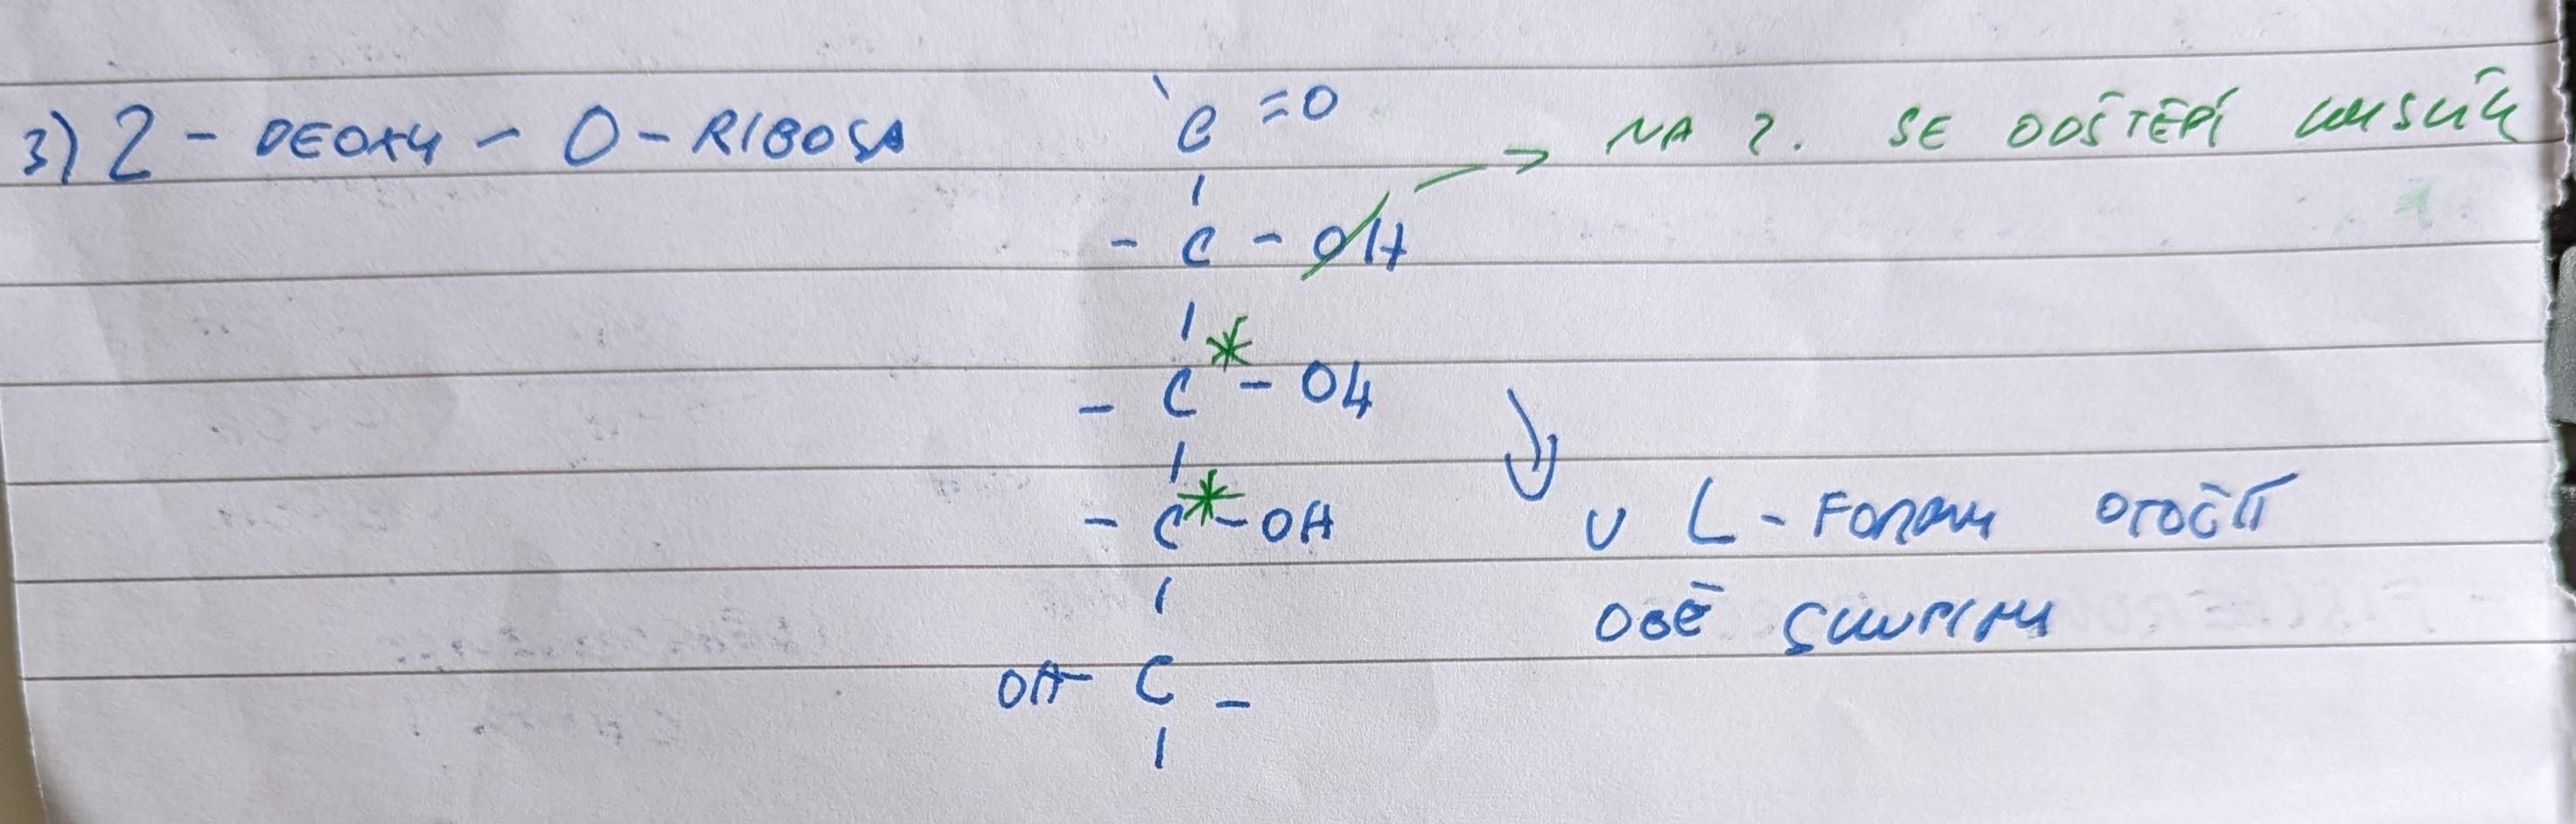 3) 2 - DEOXY - D - RIBOSA
C = O
NA 2. SE ODŠTĚPÍ KYSLÍK
- C - OH
- C* - OH
- C* - OH
U L - FORMY OTOČIT
OBĚ SKUPINY
OH - C -